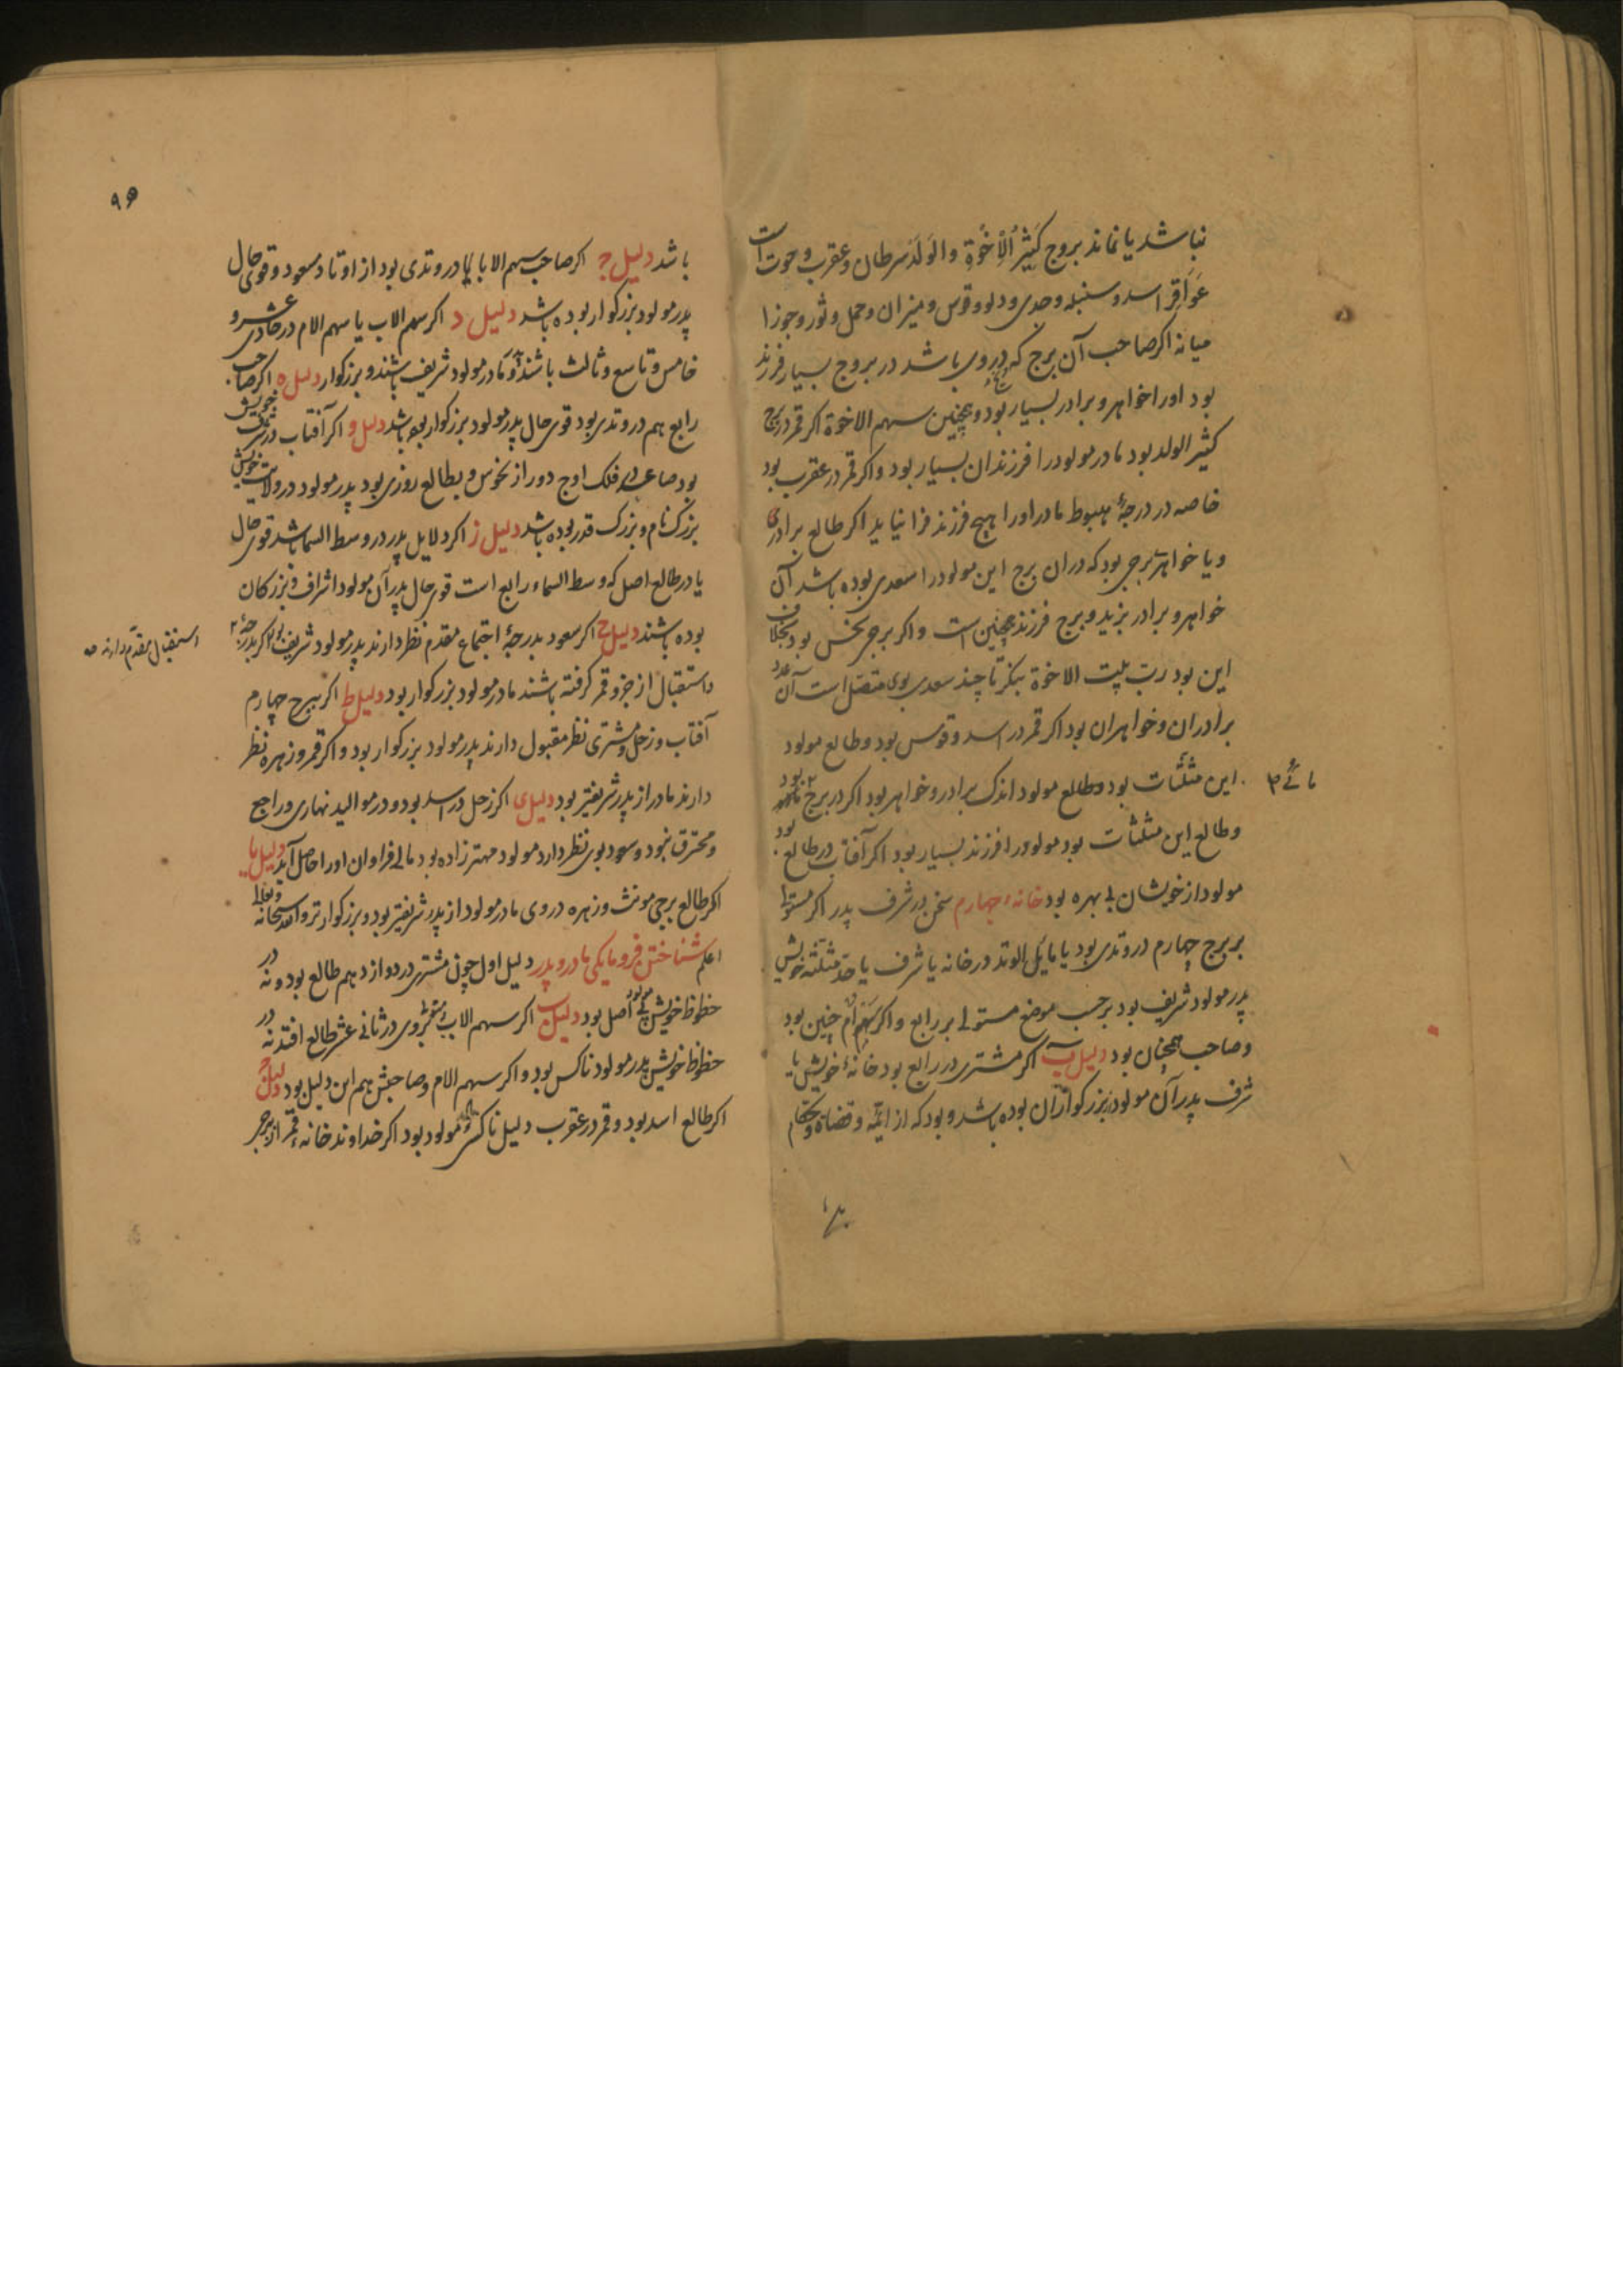 نباشد یا نماند بروج کَثِیرُ الْاِخْوَةِ والوَلَد سرطان و عقرب و حوت است
عَوَاقِر اسد و سنبله وجدی ودلو وقوس و میزان وحمل وثور وجوزا
میانه اکر صاحب آن برج که دروی باشد در بروج بسیار فرزند
بود اورا خواهر و برادر بسیار بود وهمچنین سهم الاخوة اکر قمر در برج
کثیر الولد بود مادر مولود را فرزندان بسیار بود واکر قمر در عقرب بود
خاصه در درجهٔ هبوط مادر اورا هیچ فرزند فرا نیاید اکر طالع برادر
ویا خواهر برجی بود که دران برج این مولود را سعدی بوده باشد آن
خواهر و برادر بزید و برج فرزند همچنین است واکر برج نحس بود بخلاف
این بود رب بیت الاخوة بنکر تا چند سعد بوی متصل است آن عدد
برادران وخواهران بود اکر قمر در اسد وقوس بود وطالع مولود
این مثلثات بود وطالع مولود اندک برادر وخواهر بود اکر در برج بود
وطالع این مثلثات بود مولود را فرزند بسیار بود اکر آفتاب در طالع بود
مولود از خویشان بی بهره بود خانهٔ چهارم سخن در شرف پدر اکر مستولی
بر برج چهارم در وتدی بود یا مایل الوتد در خانه یا شرف یا حد مثلثه خویش
پدر مولود شریف بود برحسب موضع مستولی بر رابع واکر سهم ام چنین بود
وصاحب همچنان بود دلیل ب اکر مشتری در رابع بود خانهٔ خویش یا
شرف پدر آن مولود بزرکوار آن بوده باشد و بود که از ایمّه و قضاة و حکام
باشد دلیل ج اکر صاحب سهم الابا در وتدی بود از اوتاد مسعود وقوی حال
پدر مولود بزرکوار بوده باشد دلیل د اکر سهم الاب یا سهم الام در حادی عشر و
خامس و تاسع وثالث باشند و مادر مولود شریف باشند و بزرکوار دلیل ه اکر صاحب
رابع هم در وتدی بود قوی حال پدر مولود بزرکوار بود باشد دلیل و اکر آفتاب در خویش
بود صاعد در فلک اوج دور از نحوس و بطالع روزی بود پدر مولود در ولایت خویش
بزرک نام و بزرک قدر بوده باشد دلیل ز اکر دلایل پدر در وسط السما باشد قوی حال
یا در طالع اصل که وسط السماء رابع است قوی حال پدر آن مولود اشراف و بزرکان
بوده باشند دلیل ح اکر سعود بدرجهٔ اجتماع مقدم نظر دارند پدر مولود شریف بود اکر بدرجهٔ
استقبال مقدم دارند صح
واستقبال از جزو قمر کرفته باشند مادر مولود بزرکوار بود دلیل ط اکر ببرج چهارم
آفتاب وزحل ومشتری نظر مقبول دارند پدر مولود بزرکوار بود واکر قمر وزهره نظر
دارند مادر از پدر شریفتر بود دلیل ی اکر زحل در اسد بود ودر موالید نهاری وراجع
ومحترق نبود وسعود بوی نظر دارد مولود مهتر زاده بود مالی فراوان اورا حاصل آید دلیل یا
اکر طالع برجی مونث وزهره دروی مادر مولود از پدر شریفتر بود و بزرکوارتر والله سبحانه وتعالی
اعلم شناختن فرومایکی مادر وپدر دلیل اول چون مشتری در دوازدهم طالع بود ونه در
حظوظ خویش مولود بی اصل بود دلیل ب اکر سهم الاب ومستولی بروی در ثانی عشر طالع افتد نه در
حظوظ خویش پدر مولود ناکس بود واکر سهم الام وصاحبش هم این دلیل بود دلیل ج
اکر طالع اسد بود وقمر در عقرب دلیل ناکسی مولود بود اکر خداوند خانه قمر از برج